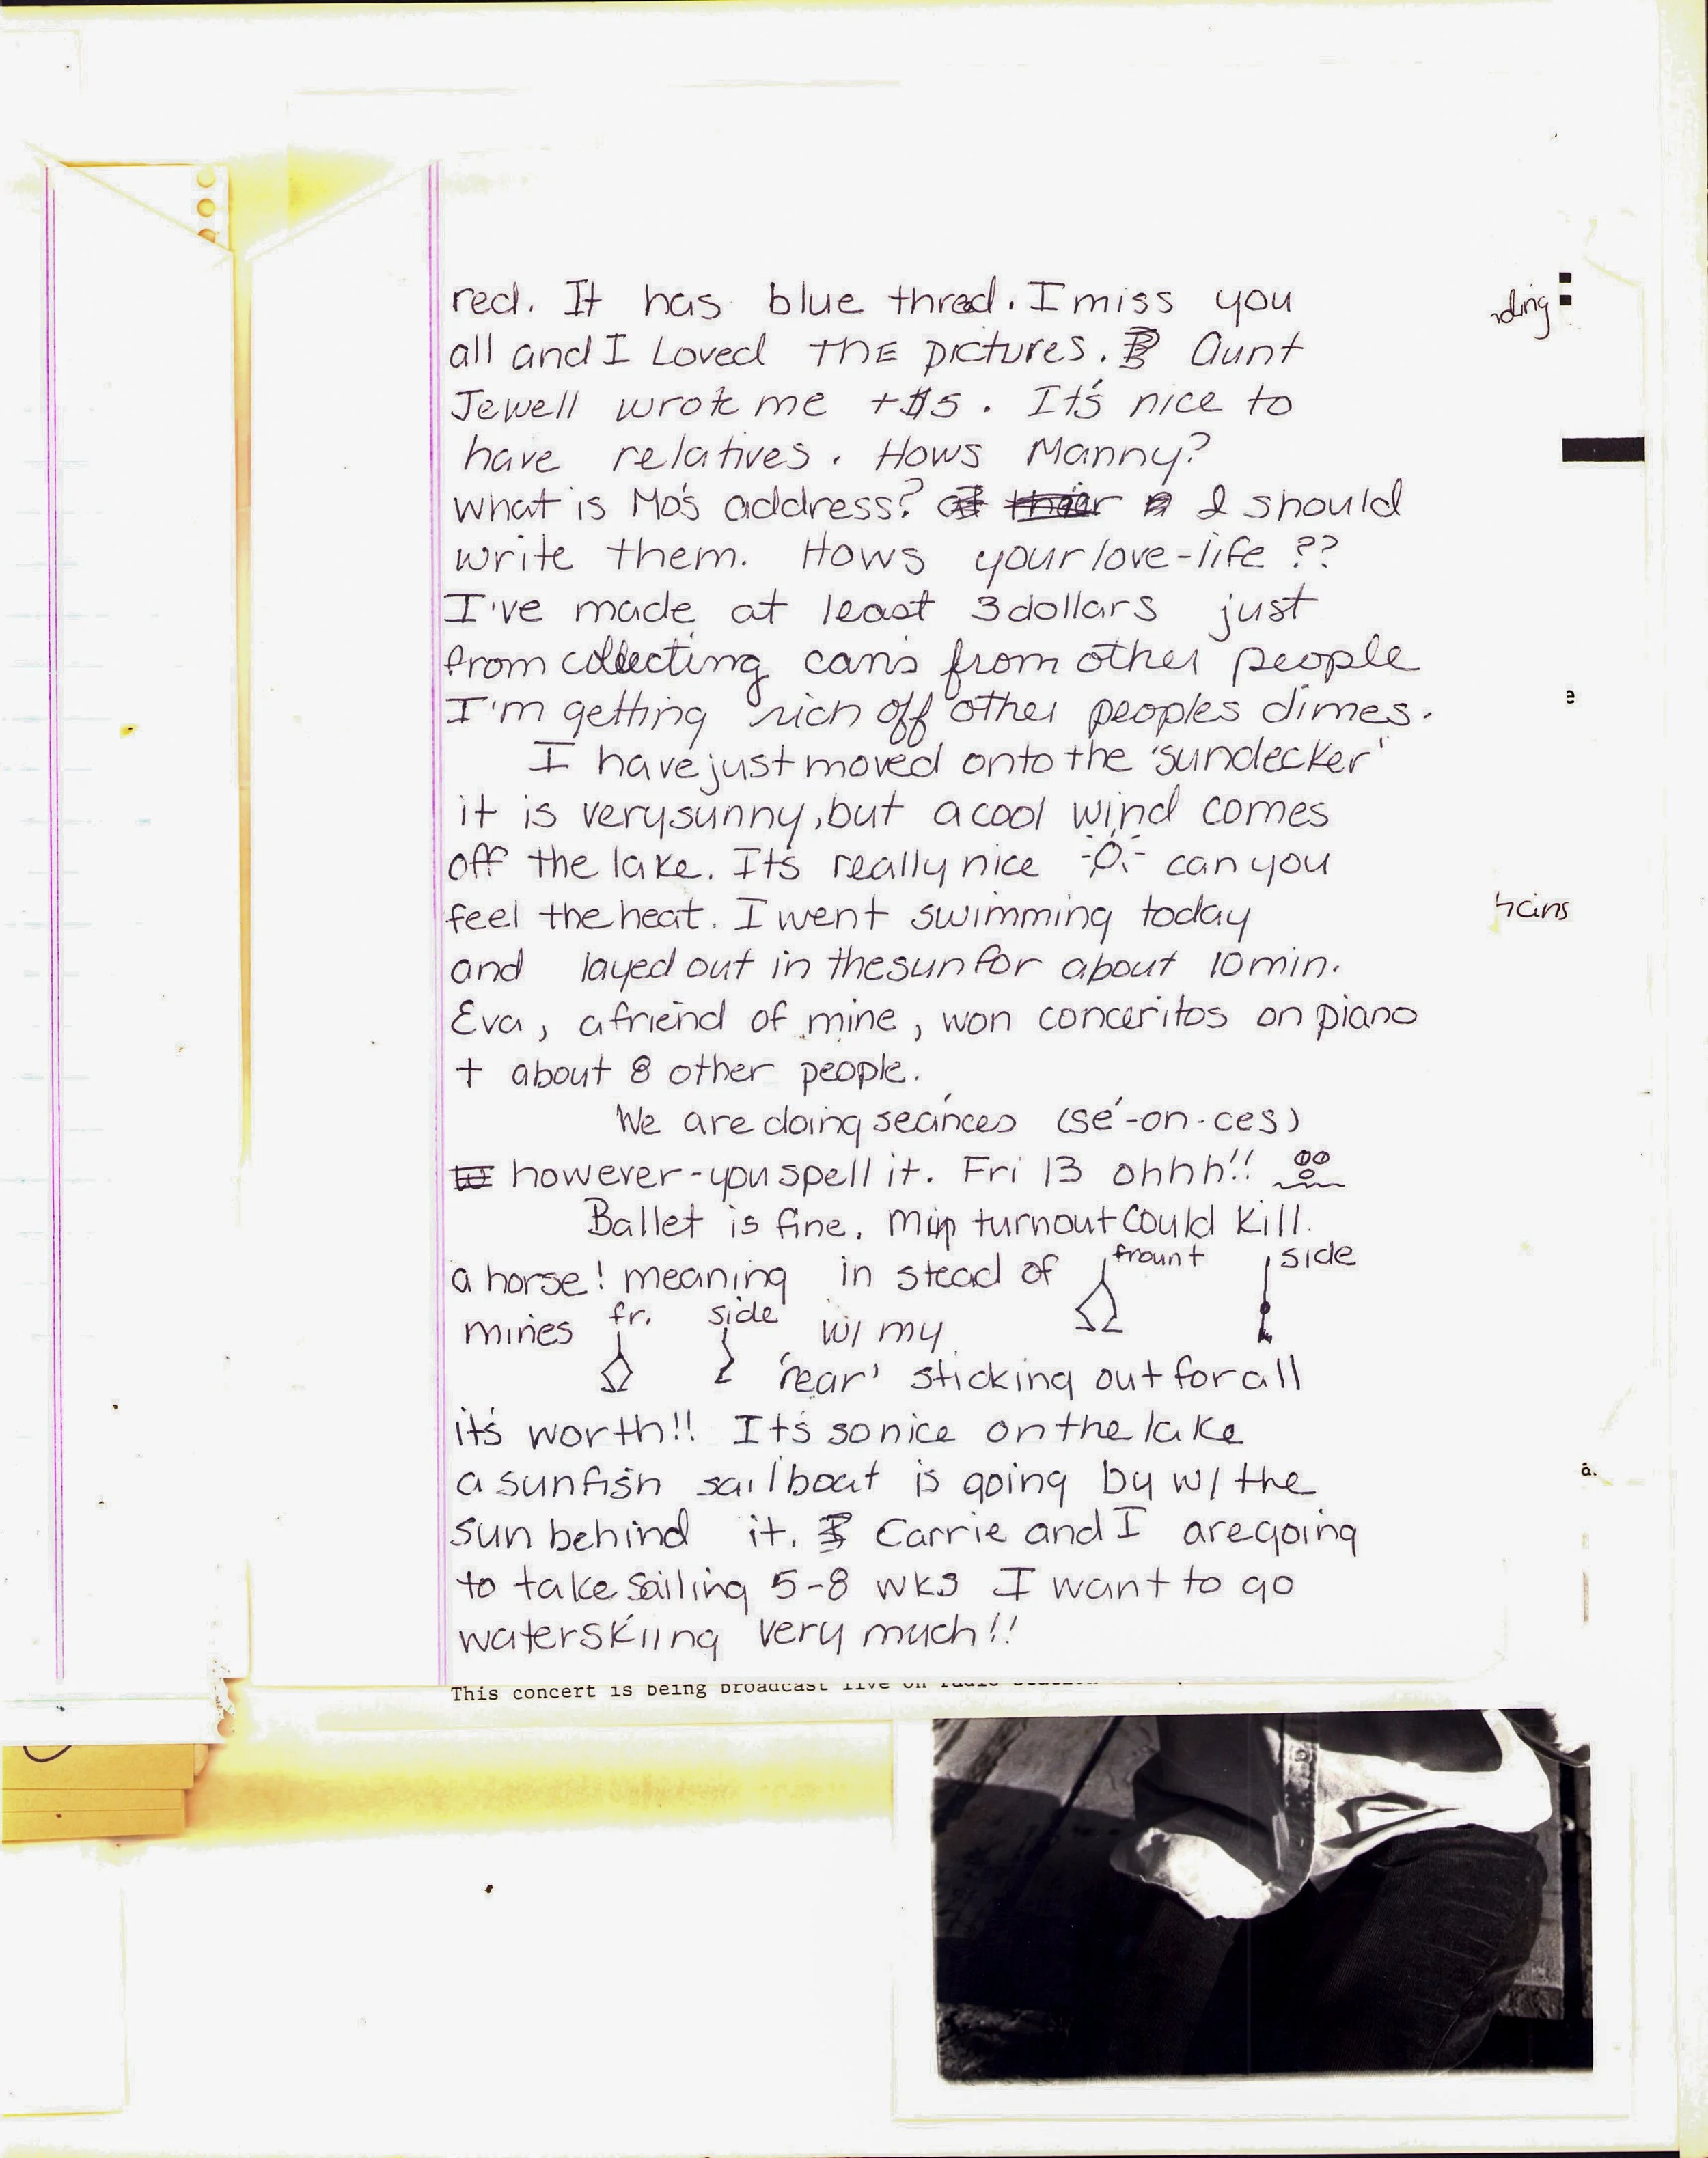 red. It has blue thred. I miss you
all and I Loved THE pictures. Aunt
Jewell wrote me + $5. It's nice to
have relatives. Hows Manny?
what is Mo's address? I should
write them. Hows your love-life ??
I've made at least 3 dollars just
from collecting cans from other people
I'm getting rich off other peoples dimes.
I have just moved onto the 'sundecker'
it is very sunny, but a cool wind comes
off the lake. It's really nice can you
feel the heat. I went swimming today
and layed out in the sun for about 10 min.
Eva, a friend of mine, won conceritos on piano
+ about 8 other people.
We are doing seánces (sé-on-ces)
however-you spell it. Fri 13 ohhh!!
Ballet is fine. turnout Could Kill.
a horse! meaning in stead of frount side
mines fr. side w/ my
'rear' sticking out for all
it's worth!! It's so nice on the lake
a sunfish sailboat is going by w/ the
sun behind it. Carrie and I are going
to take sailing 5-8 wks I want to go
waterskiing very much!!
This concert is being broadcast live on radio
ding
e
hains
a.